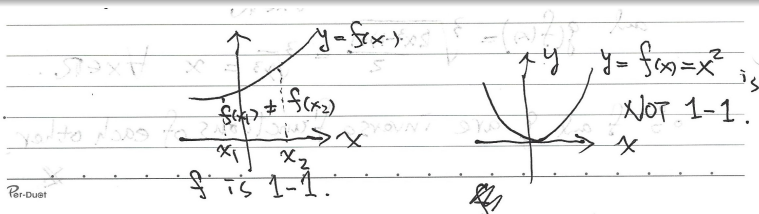 y = f(x).
f(x₁) ≠ f(x₂)
x₁ x₂ x
f is 1-1.
y
y = f(x) = x² is
NOT 1-1.
x
Per-Duet